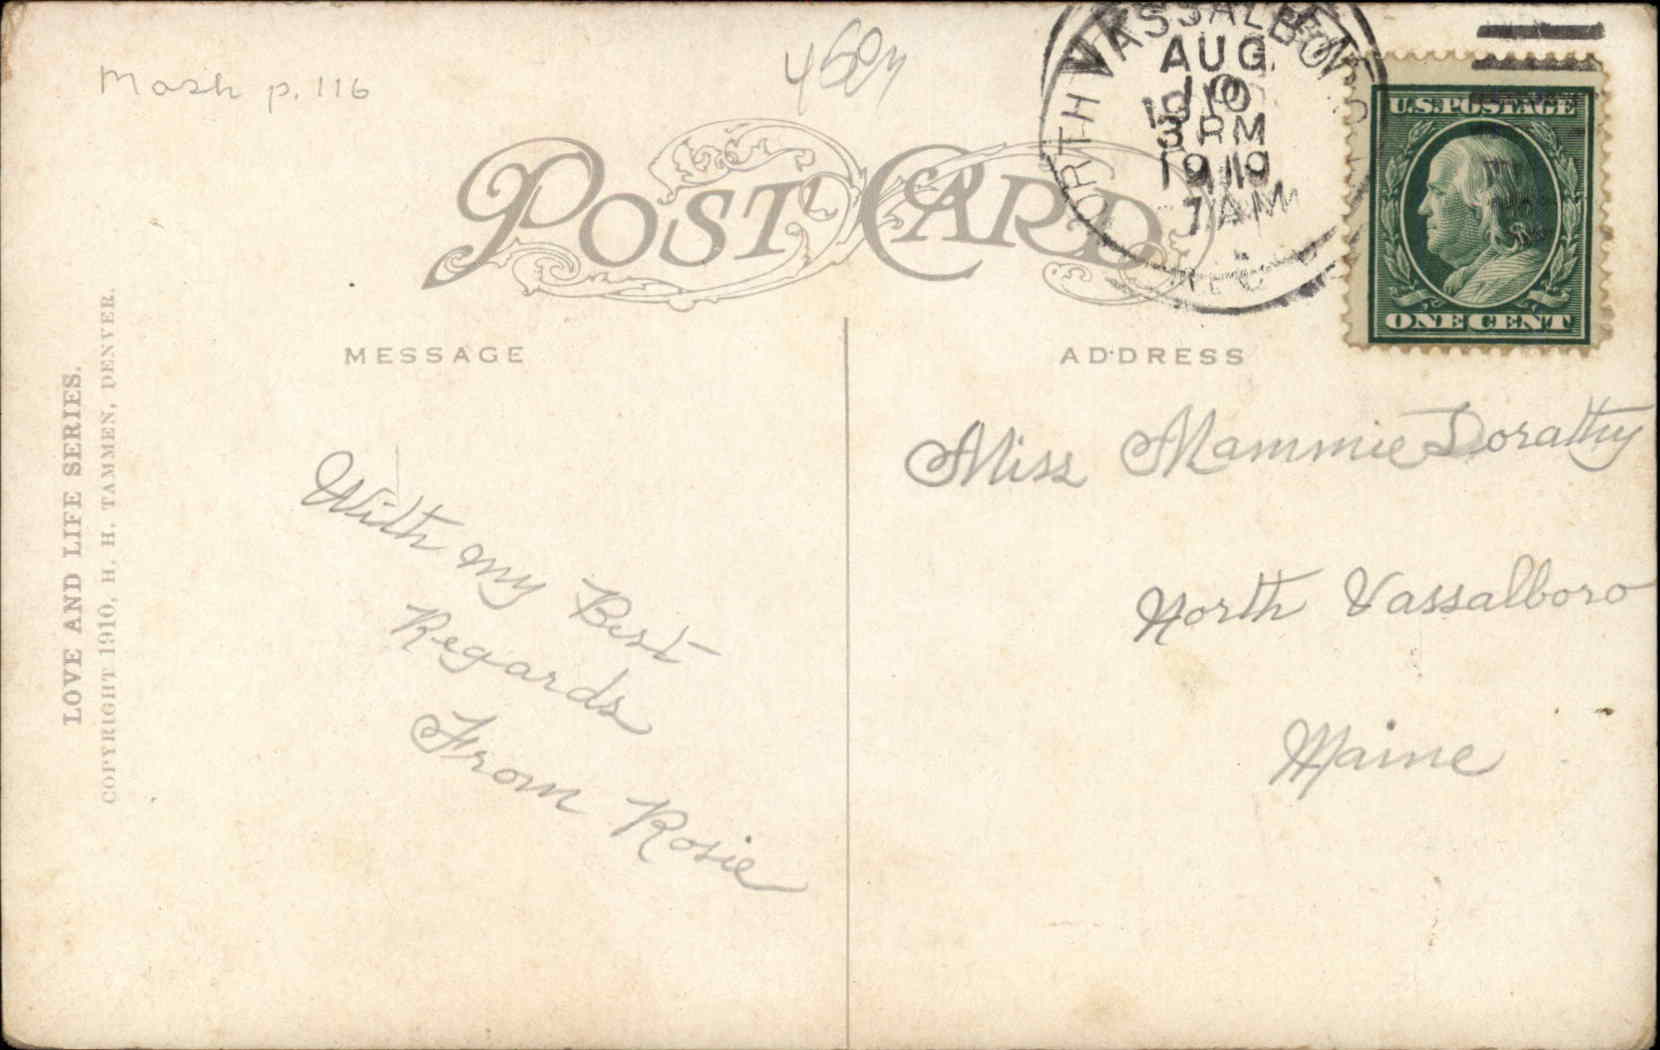 Mash p. 116
VASSALBO
NORTH
AUG
10
1910
3 PM
1910
7 AM
U.S. POSTAGE
ONE CENT
POST CARD
MESSAGE
ADDRESS
LOVE AND LIFE SERIES.
COPYRIGHT 1910, H. H. TAMMEN, DENVER.
With my Best
Regards
From Rosie
Miss Mammie Dorathy
North Vassalboro
Maine